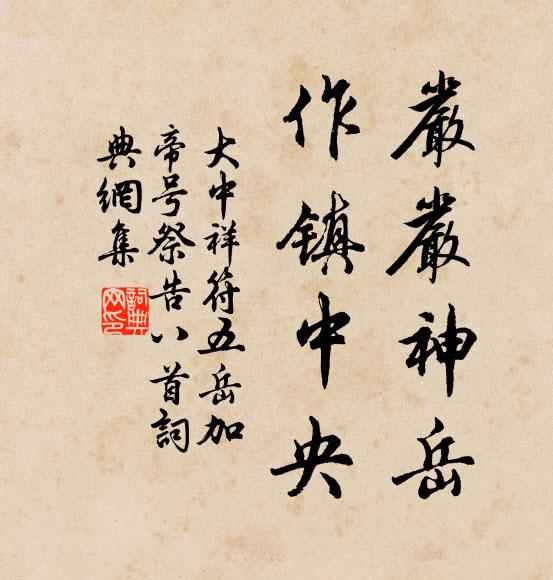 嚴嚴神岳
作鎮中央
大中祥符五岳加
帝号祭告八首詞
典網集
詞典
网印